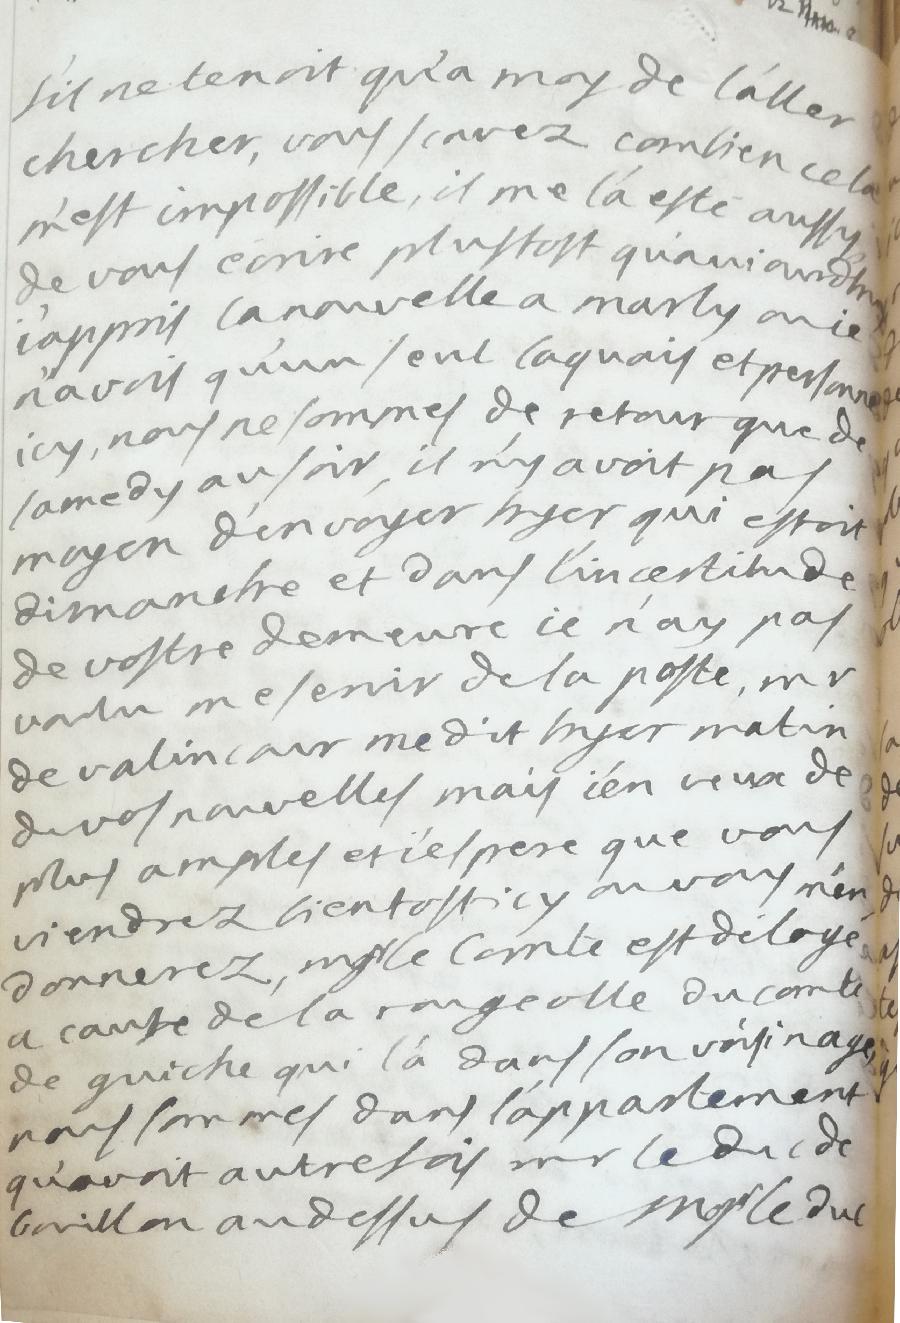 s'il ne tenoit qu'a moy de l'aller
chercher, vous scavez combien cela
m'est impossible, il me l'a esté aussy
de vous ecrire plustost qu'auiourdhuy
i'appris la nouvelle a marly ou ie
n'avois qu'un seul laquais et personne
icy, nous ne sommes de retour que de
samedy au soir, il n'y avoit pas
moyen d'envoyer hyer qui estoit
dimanche et dans l'incertitude
de vostre demeure ie n'ay pas
voulu me servir de la poste, mr
de valincour me dit hyer matin
de vos nouvelles mais i'en veux de
plus amples et i'espere que vous
viendrez bientost icy ou vous m'en
donnerez, mgr le Comte est délogé
a cause de la rougeolle du comte
de guiche qui l'a dans son voisinage,
nous sommes dans l'appartement
qu'avoit autrefois mr le duc de
bouillon au dessus de Mgr le duc